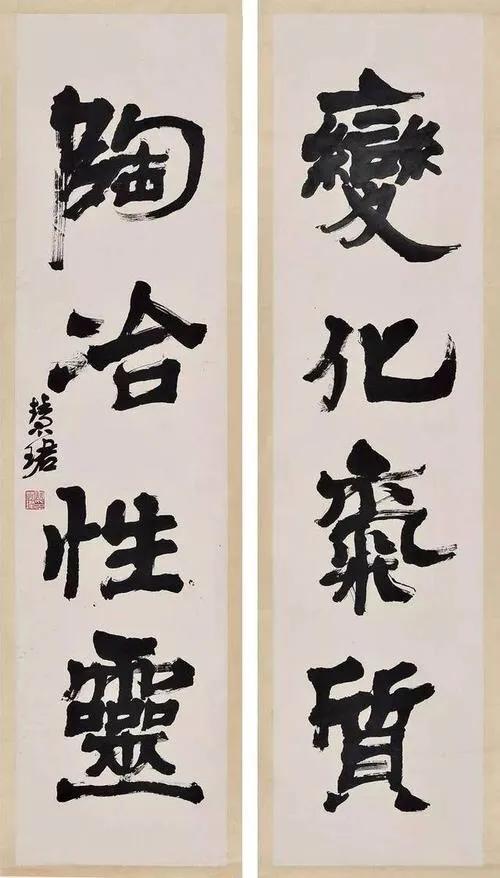 變化氣質
陶冶性靈
慧珺